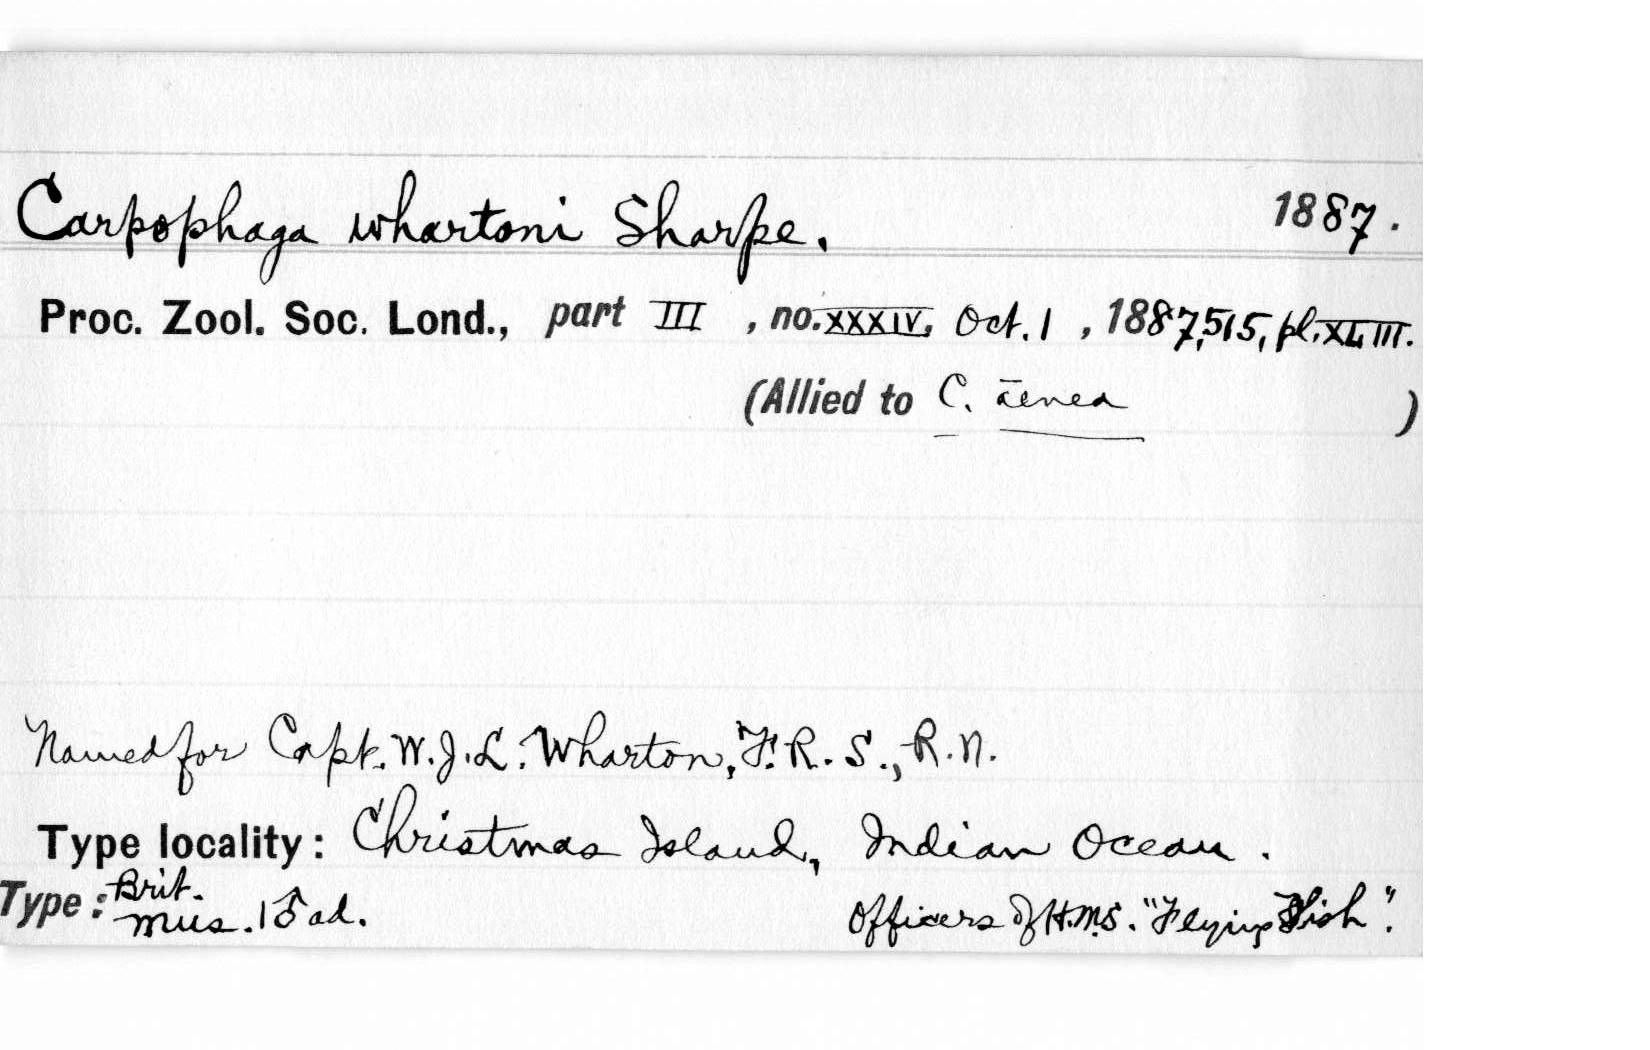 Carpophaga whartoni Sharpe. 1887.
Proc. Zool. Soc. Lond., part III, no. XXXIV, Oct. 1, 1887, 515, pl. XLIII.
(Allied to C. aenea)
Named for Capt. W. J. L. Wharton, F. R. S., R. N.
Type locality: Christmas Island, Indian Ocean.
Type: Brit. Mus. 1 ♂ ad. Officers of H.M.S. "Flying Fish".